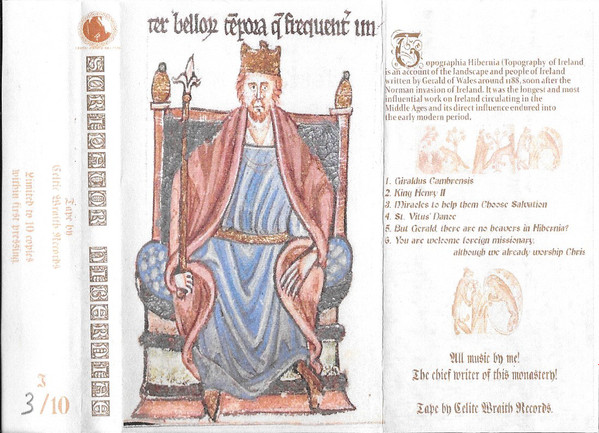 Tape by
Celite Wraith Records
Limited to 10 copies
within first pressing
I
3/10
ter belloꝝ tēpora q̄ frequent̄ im
Topographia Hibernia (Topography of Ireland
is an account of the landscape and people of Ireland
written by Gerald of Wales around 1188, soon after the
Norman invasion of Ireland. It was the longest and most
influential work on Ireland circulating in the
Middle Ages and its direct influence endured into
the early modern period.
1. Giraldus Cambrensis
2. King Henry II
3. Miracles to help them Choose Salvation
4. St. Vitus' Dance
5. But Gerald, there are no beavers in Hibernia?
6. You are welcome foreign missionary,
although we already worship Chris
All music by me!
The chief writer of this monastery!
Tape by Celite Wraith Records.